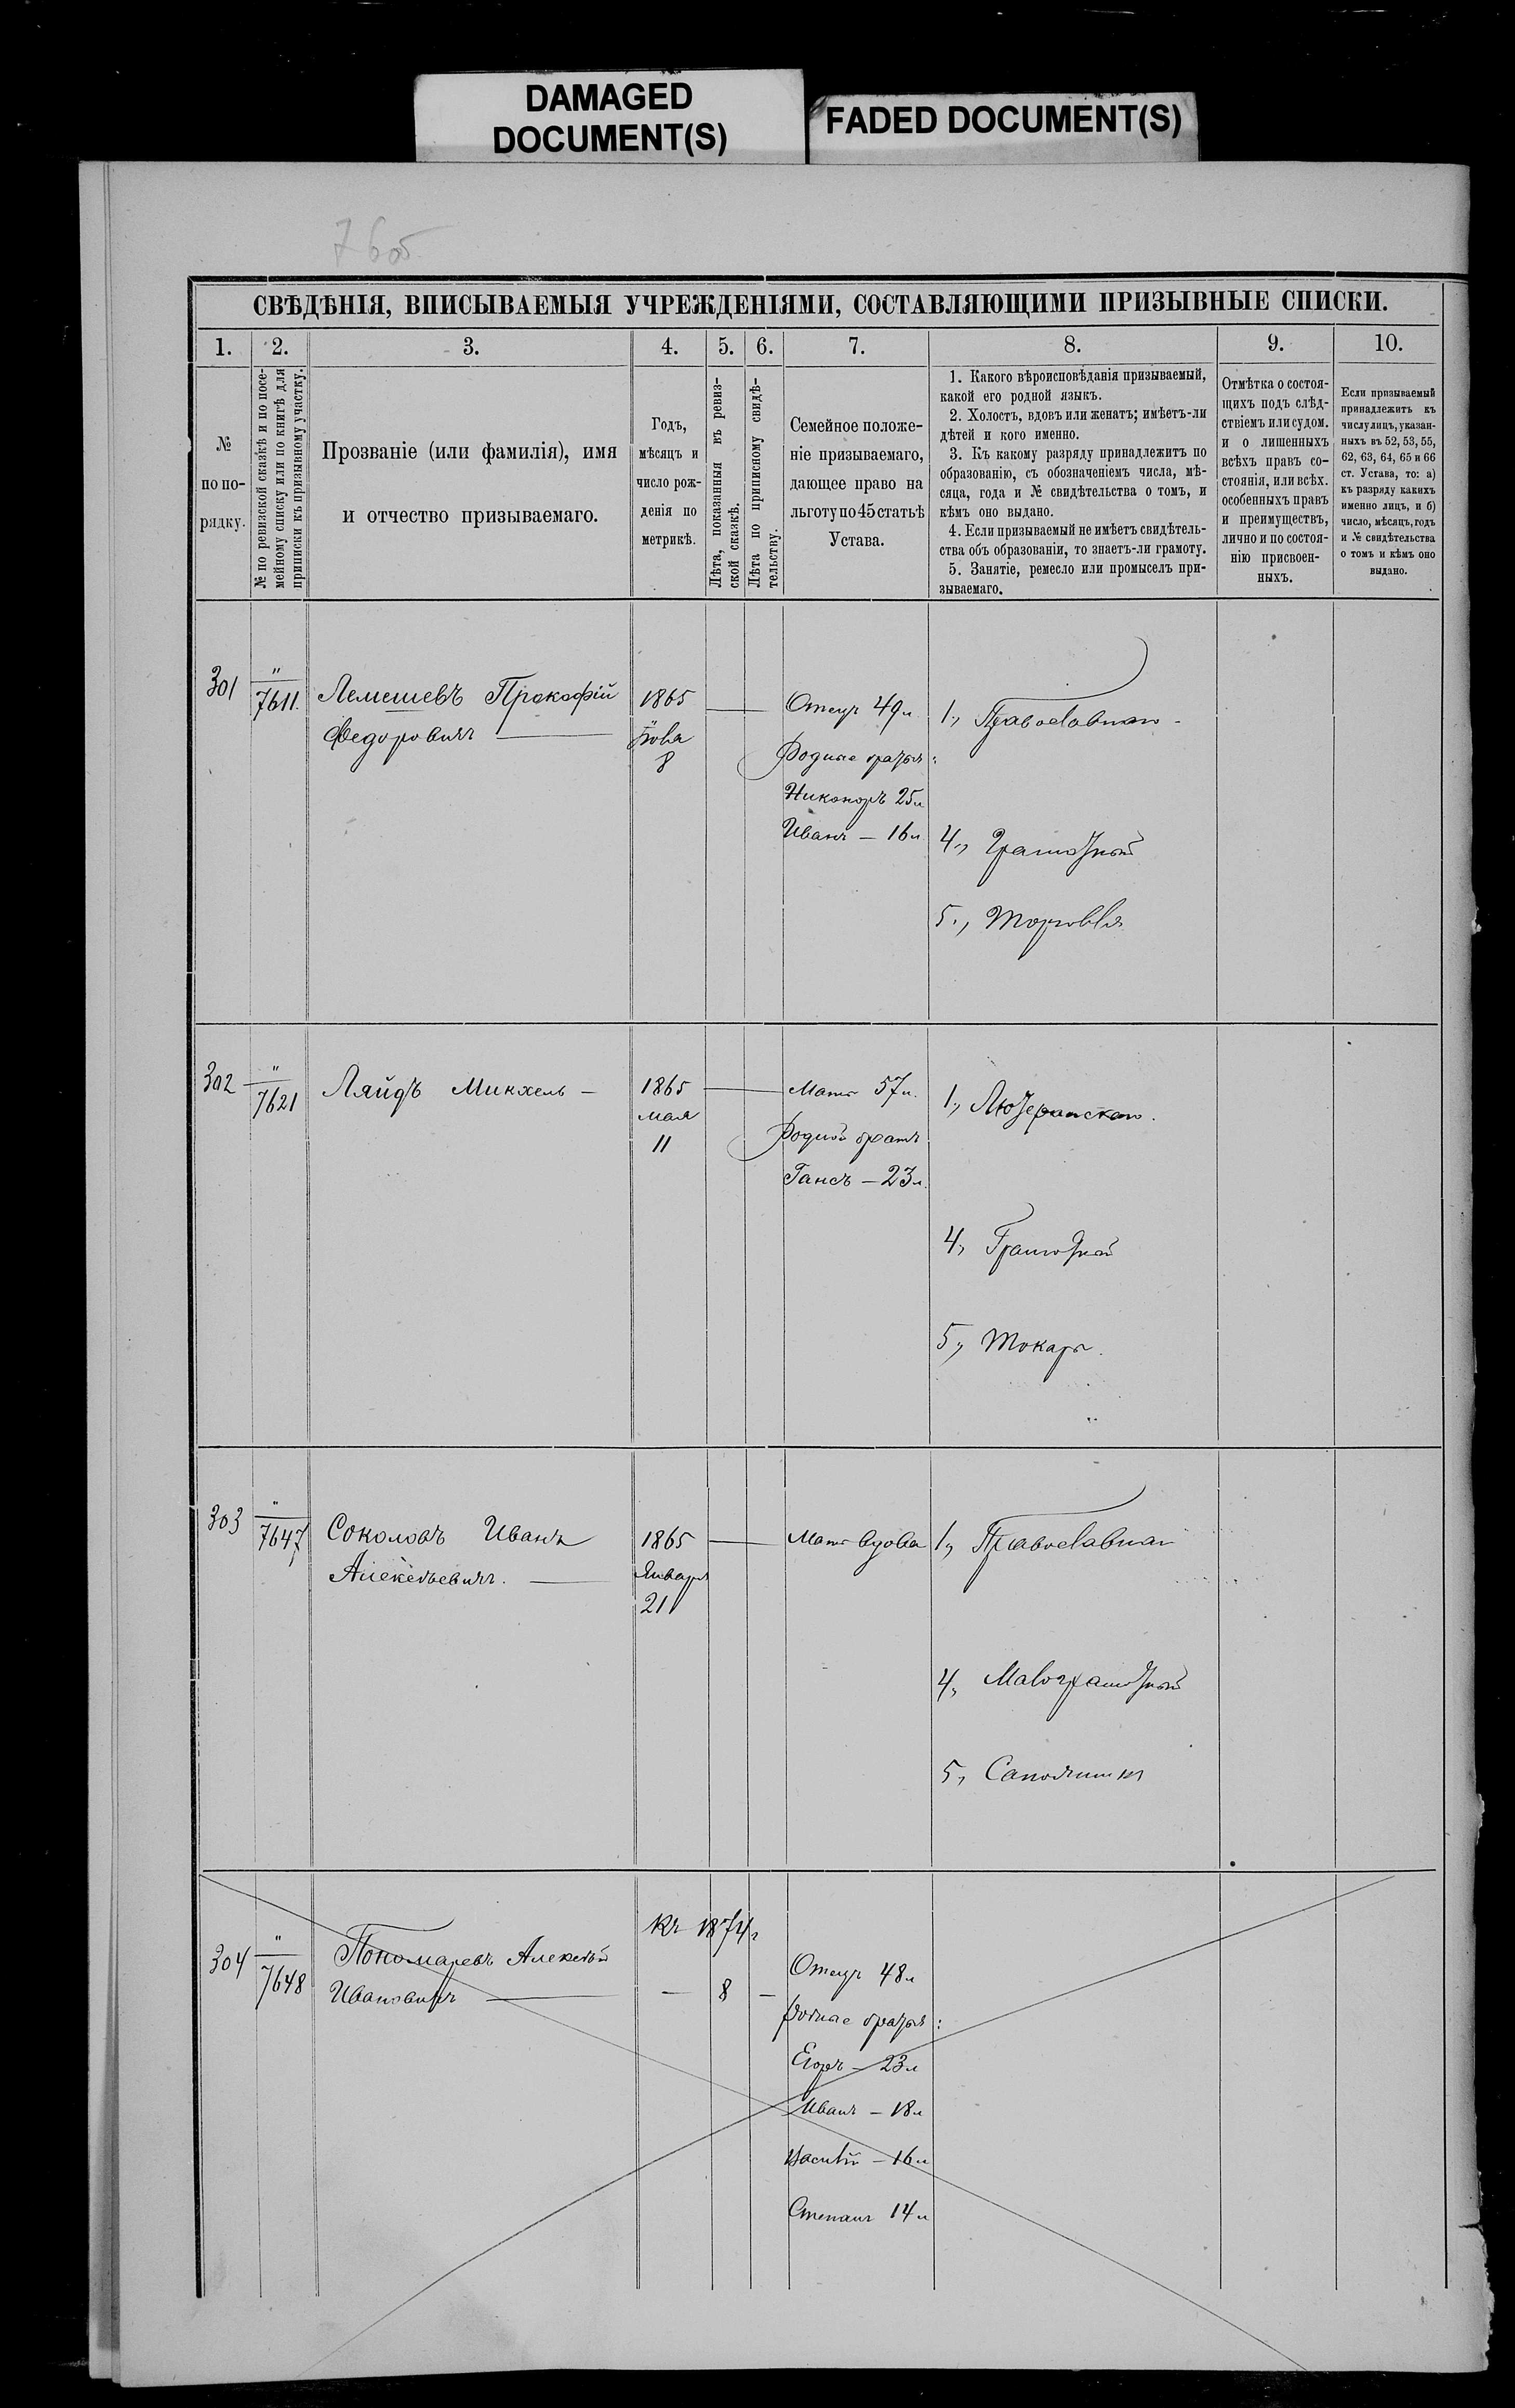 DAMAGED
DOCUMENT(S)
FADED DOCUMENT(S)
СВѢДѢНІЯ, ВПИСЫВАЕМЫЯ УЧРЕЖДЕНІЯМИ, СОСТАВЛЯЮЩИМИ ПРИЗЫВНЫЕ СПИСКИ.
1. 2. 3. 4. 5. 6. 7. 8. 9. 10.
№
по по-
рядку.
№ по ревизской сказкѣ и по посе-
мейному списку или по книгѣ для
приписки къ призывному участку.
Прозваніе (или фамилія), имя
и отчество призываемаго.
Годъ,
мѣсяцъ и
число рож-
денія по
метрикѣ.
Лѣта, показанныя въ ревиз-
ской сказкѣ.
Лѣта по приписному свидѣ-
тельству.
Семейное положе-
ніе призываемаго,
дающее право на
льготу по 45 статьѣ
Устава.
1. Какого вѣроисповѣданія призываемый,
какой его родной языкъ.
2. Холостъ, вдовъ или женатъ; имѣетъ-ли
дѣтей и кого именно.
3. Къ какому разряду принадлежитъ по
образованію, съ обозначеніемъ числа, мѣ-
сяца, года и № свидѣтельства о томъ, и
кѣмъ оно выдано.
4. Если призываемый не имѣетъ свидѣтель-
ства объ образованіи, то знаетъ-ли грамоту.
5. Занятіе, ремесло или промыселъ при-
зываемаго.
Отмѣтка о состоя-
щихъ подъ слѣд-
ствіемъ или судом.
и о лишенныхъ
всѣхъ правъ со-
стоянія, или всѣх.
особенныхъ правъ
и преимуществъ,
лично и по состоя-
нію присвоен-
ныхъ.
Если призываемый
принадлежитъ къ
числу лицъ, указан-
ныхъ въ 52, 53, 55,
62, 63, 64, 65 и 66
ст. Устава, то: а)
къ разряду какихъ
именно лицъ, и б)
число, мѣсяцъ, годъ
и № свидѣтельства
о томъ и кѣмъ оно
выдано.
301
"
7611.
Лемешевъ Прокофій
Федоровичъ —
1865
Нояб.
8
Отецъ 49 л.
Родные братья:
Никоноръ 25 л
Иванъ — 16 л
1., Православнаго
4., Грамотный
5., Торговля
302
"
7621
Ляйдъ Микхель —
1865
мая
11
Мать 57 л.
Родной братъ
Гансъ — 23 л.
1., Лютеранскаго.
4, Грамотный
5, Токарь.
303
"
7647
Соколовъ Иванъ
Алексѣевичъ. —
1865
Января
21
Мать вдова
1, Православнаго
4, Малограмотный
5, Сапожникъ
304
"
7648
Пономаревъ Алексѣй
Ивановичъ —
къ 1874 г
— 8 —
Отецъ 48 л
Родные братья:
Егоръ — 23 л
Иванъ — 18 л
Василій — 16 л
Степанъ 14 л